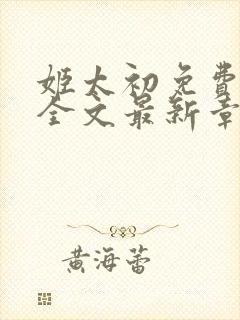 姬太初免費
全文最新章
黄海蕾